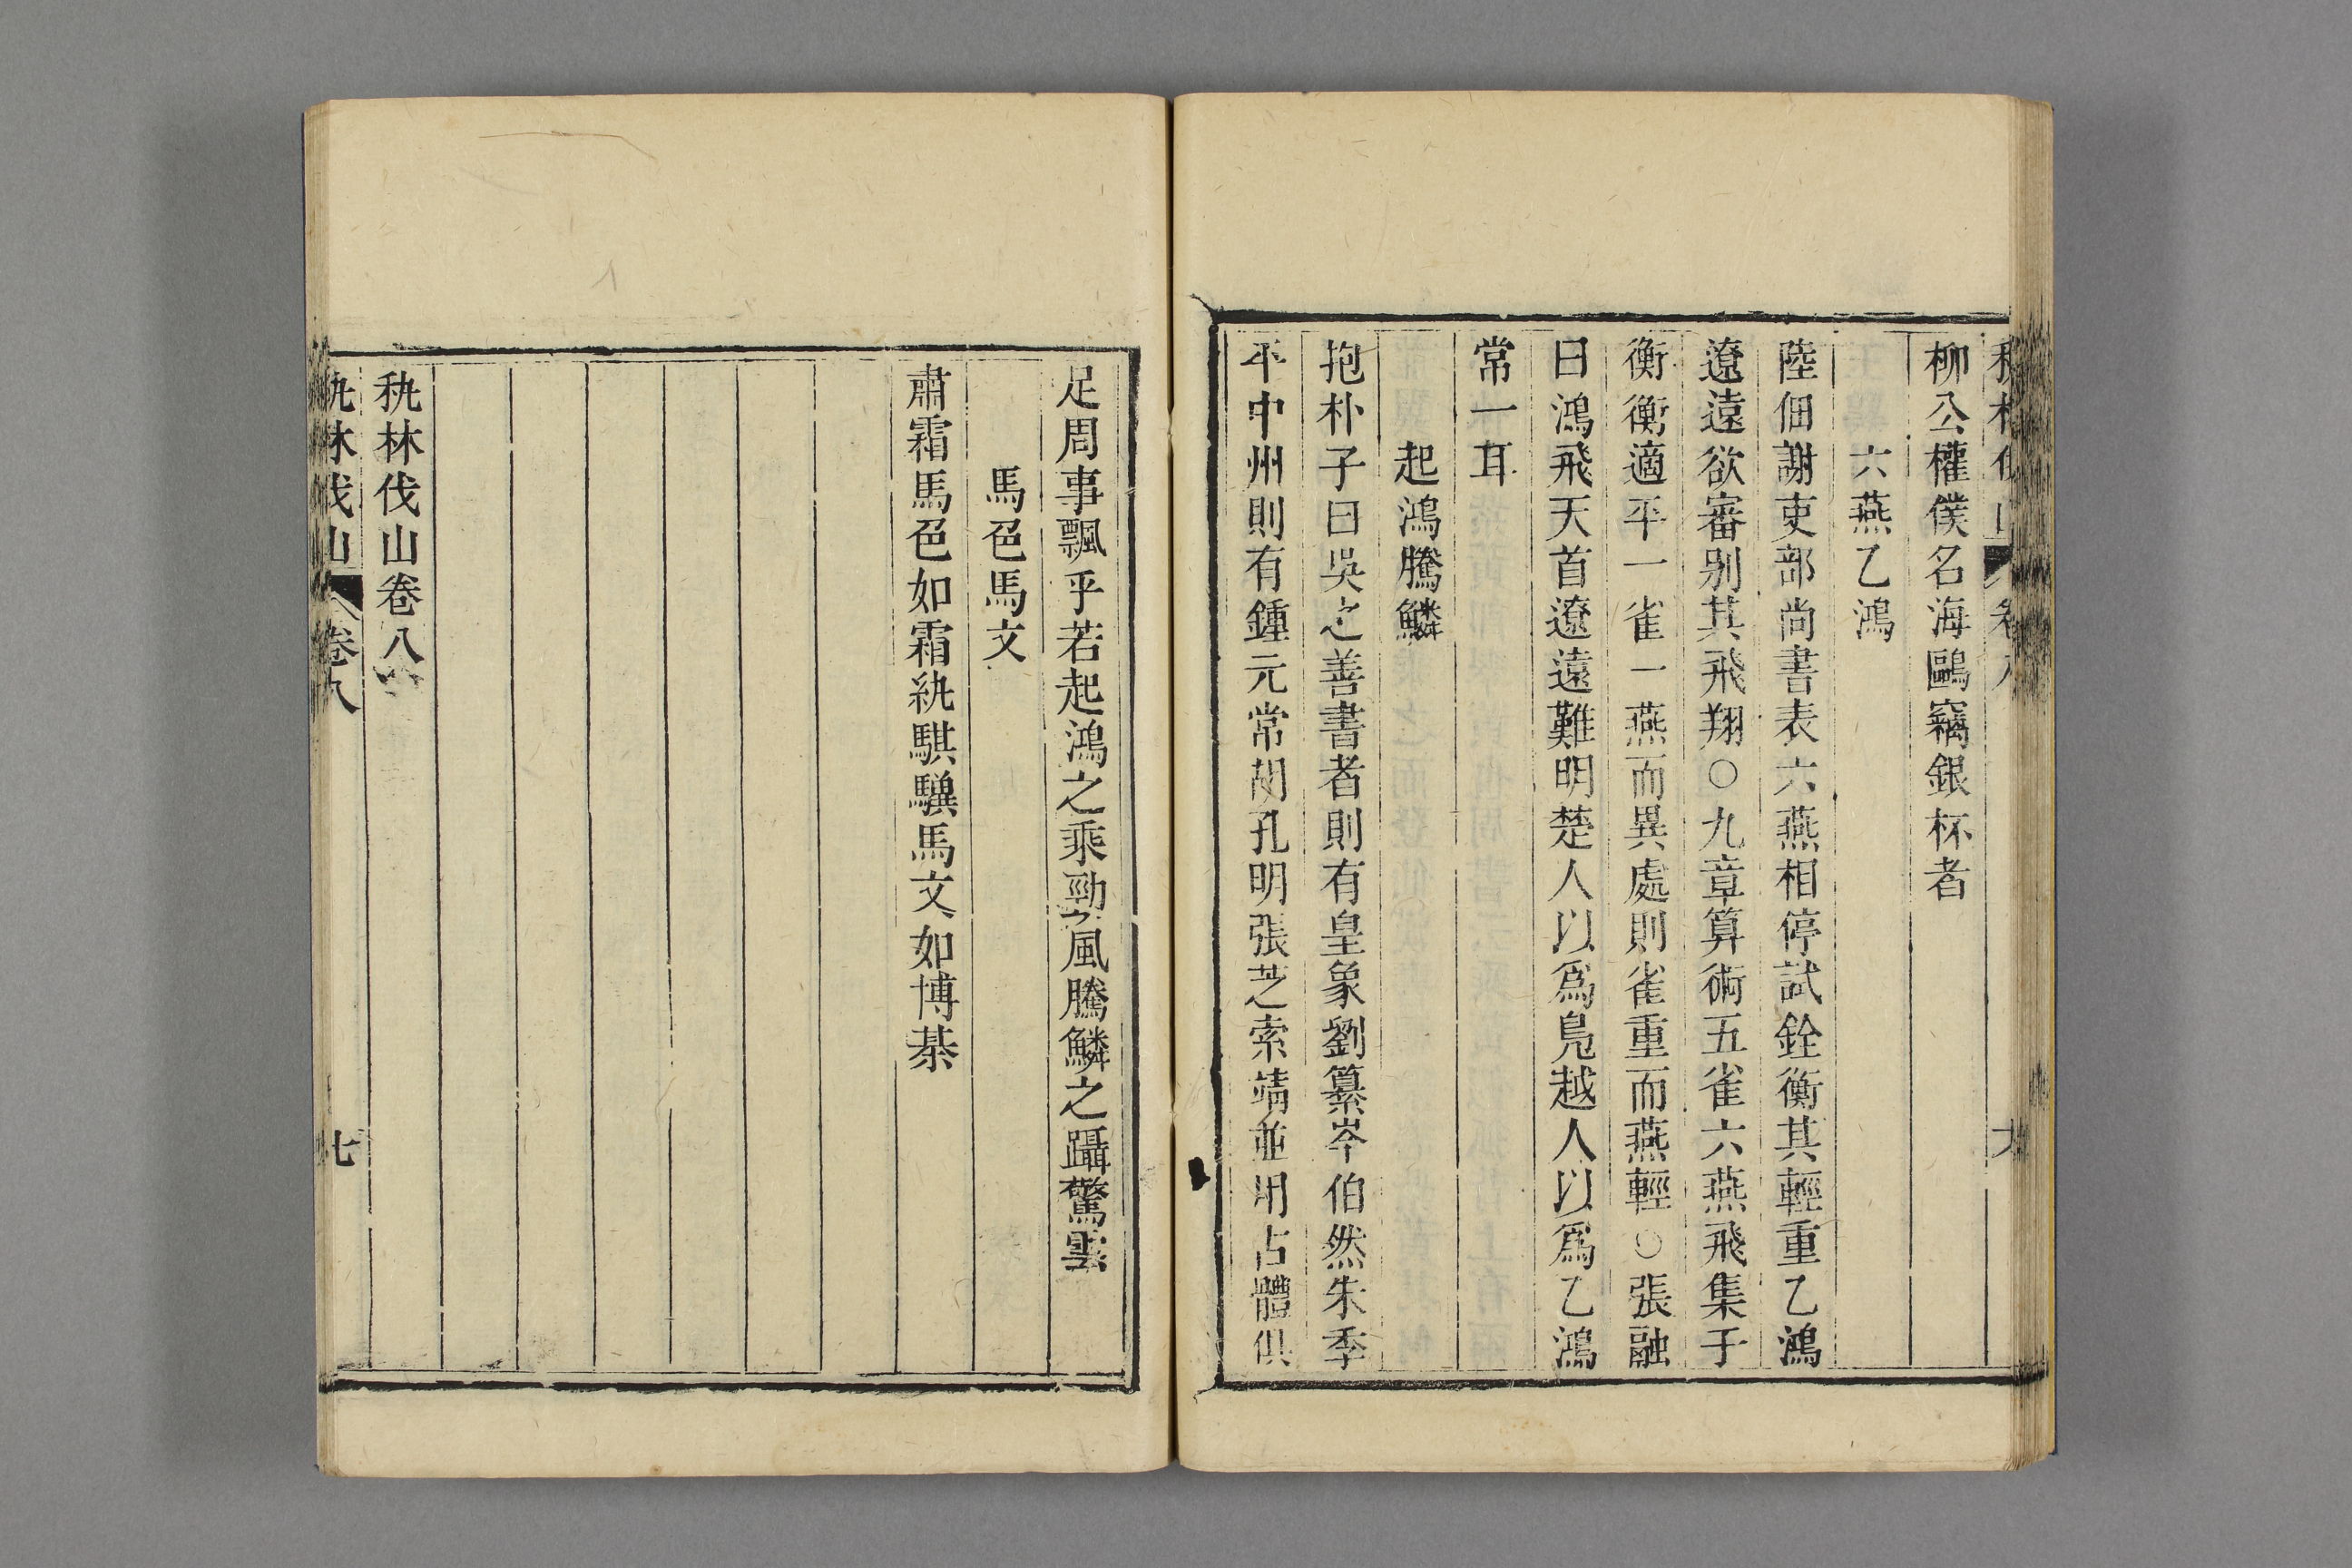 柳公權僕名海鷗竊銀杯者
六燕乙鴻
陸佃謝吏部尚書表六燕相停試銓衡其輕重乙鴻
遼遠欲審別其飛翔○九章算術五雀六燕飛集于
衡衡適平一雀一燕而異處則雀重而燕輕○張融
曰鴻飛天首遼遠難明楚人以爲鳧越人以爲乙鴻
常一耳
起鴻騰鱗
抱朴子曰吳之善書者則有皇象劉纂岑伯然朱季
平中州則有鍾元常胡孔明張芝索靖並用古體俱
足周事飄乎若起鴻之乘勁風騰鱗之躡驚雲
馬色馬文
肅霜馬色如霜紈騏驥馬文如博棊
秇林伐山卷八
秇林伐山 卷八 七